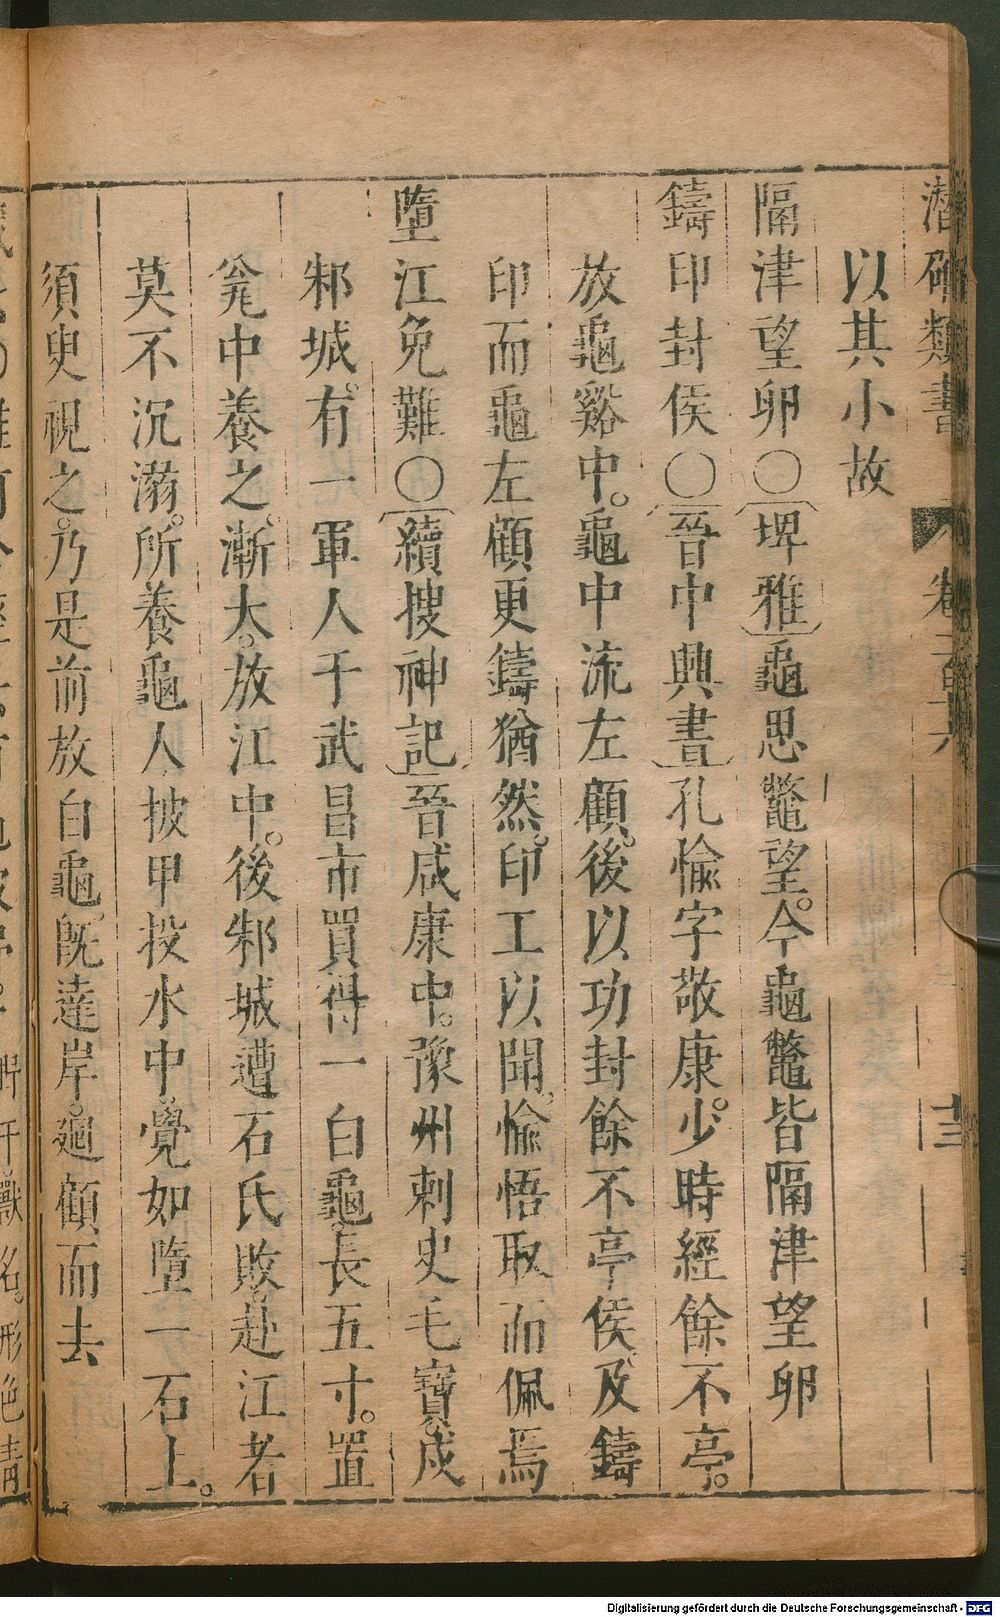 潛確類書 卷
以其小故
隔津望卵〇埤雅龜思鼈望。今龜鼈皆隔津望卵
鑄印封侯〇晉中興書孔愉字敬康。少時經餘不亭。
放龜谿中。龜中流左顧。後以功封餘不亭侯。及鑄
印而龜左顧更鑄猶然。印工以聞。愉悟取而佩焉
墮江免難〇續搜神記晉咸康中。豫州刺史毛寶。戍
邾城。有一軍人于武昌市買得一白龜。長五寸。置
瓮中養之。漸大。放江中。後邾城遭石氏敗。赴江者
莫不沉溺。所養龜人披甲投水中。覺如墮一石上。
須臾視之。乃是前放白龜。旣達岸。廻顧而去
Digitalisierung gefördert durch die Deutsche Forschungsgemeinschaft - DFG